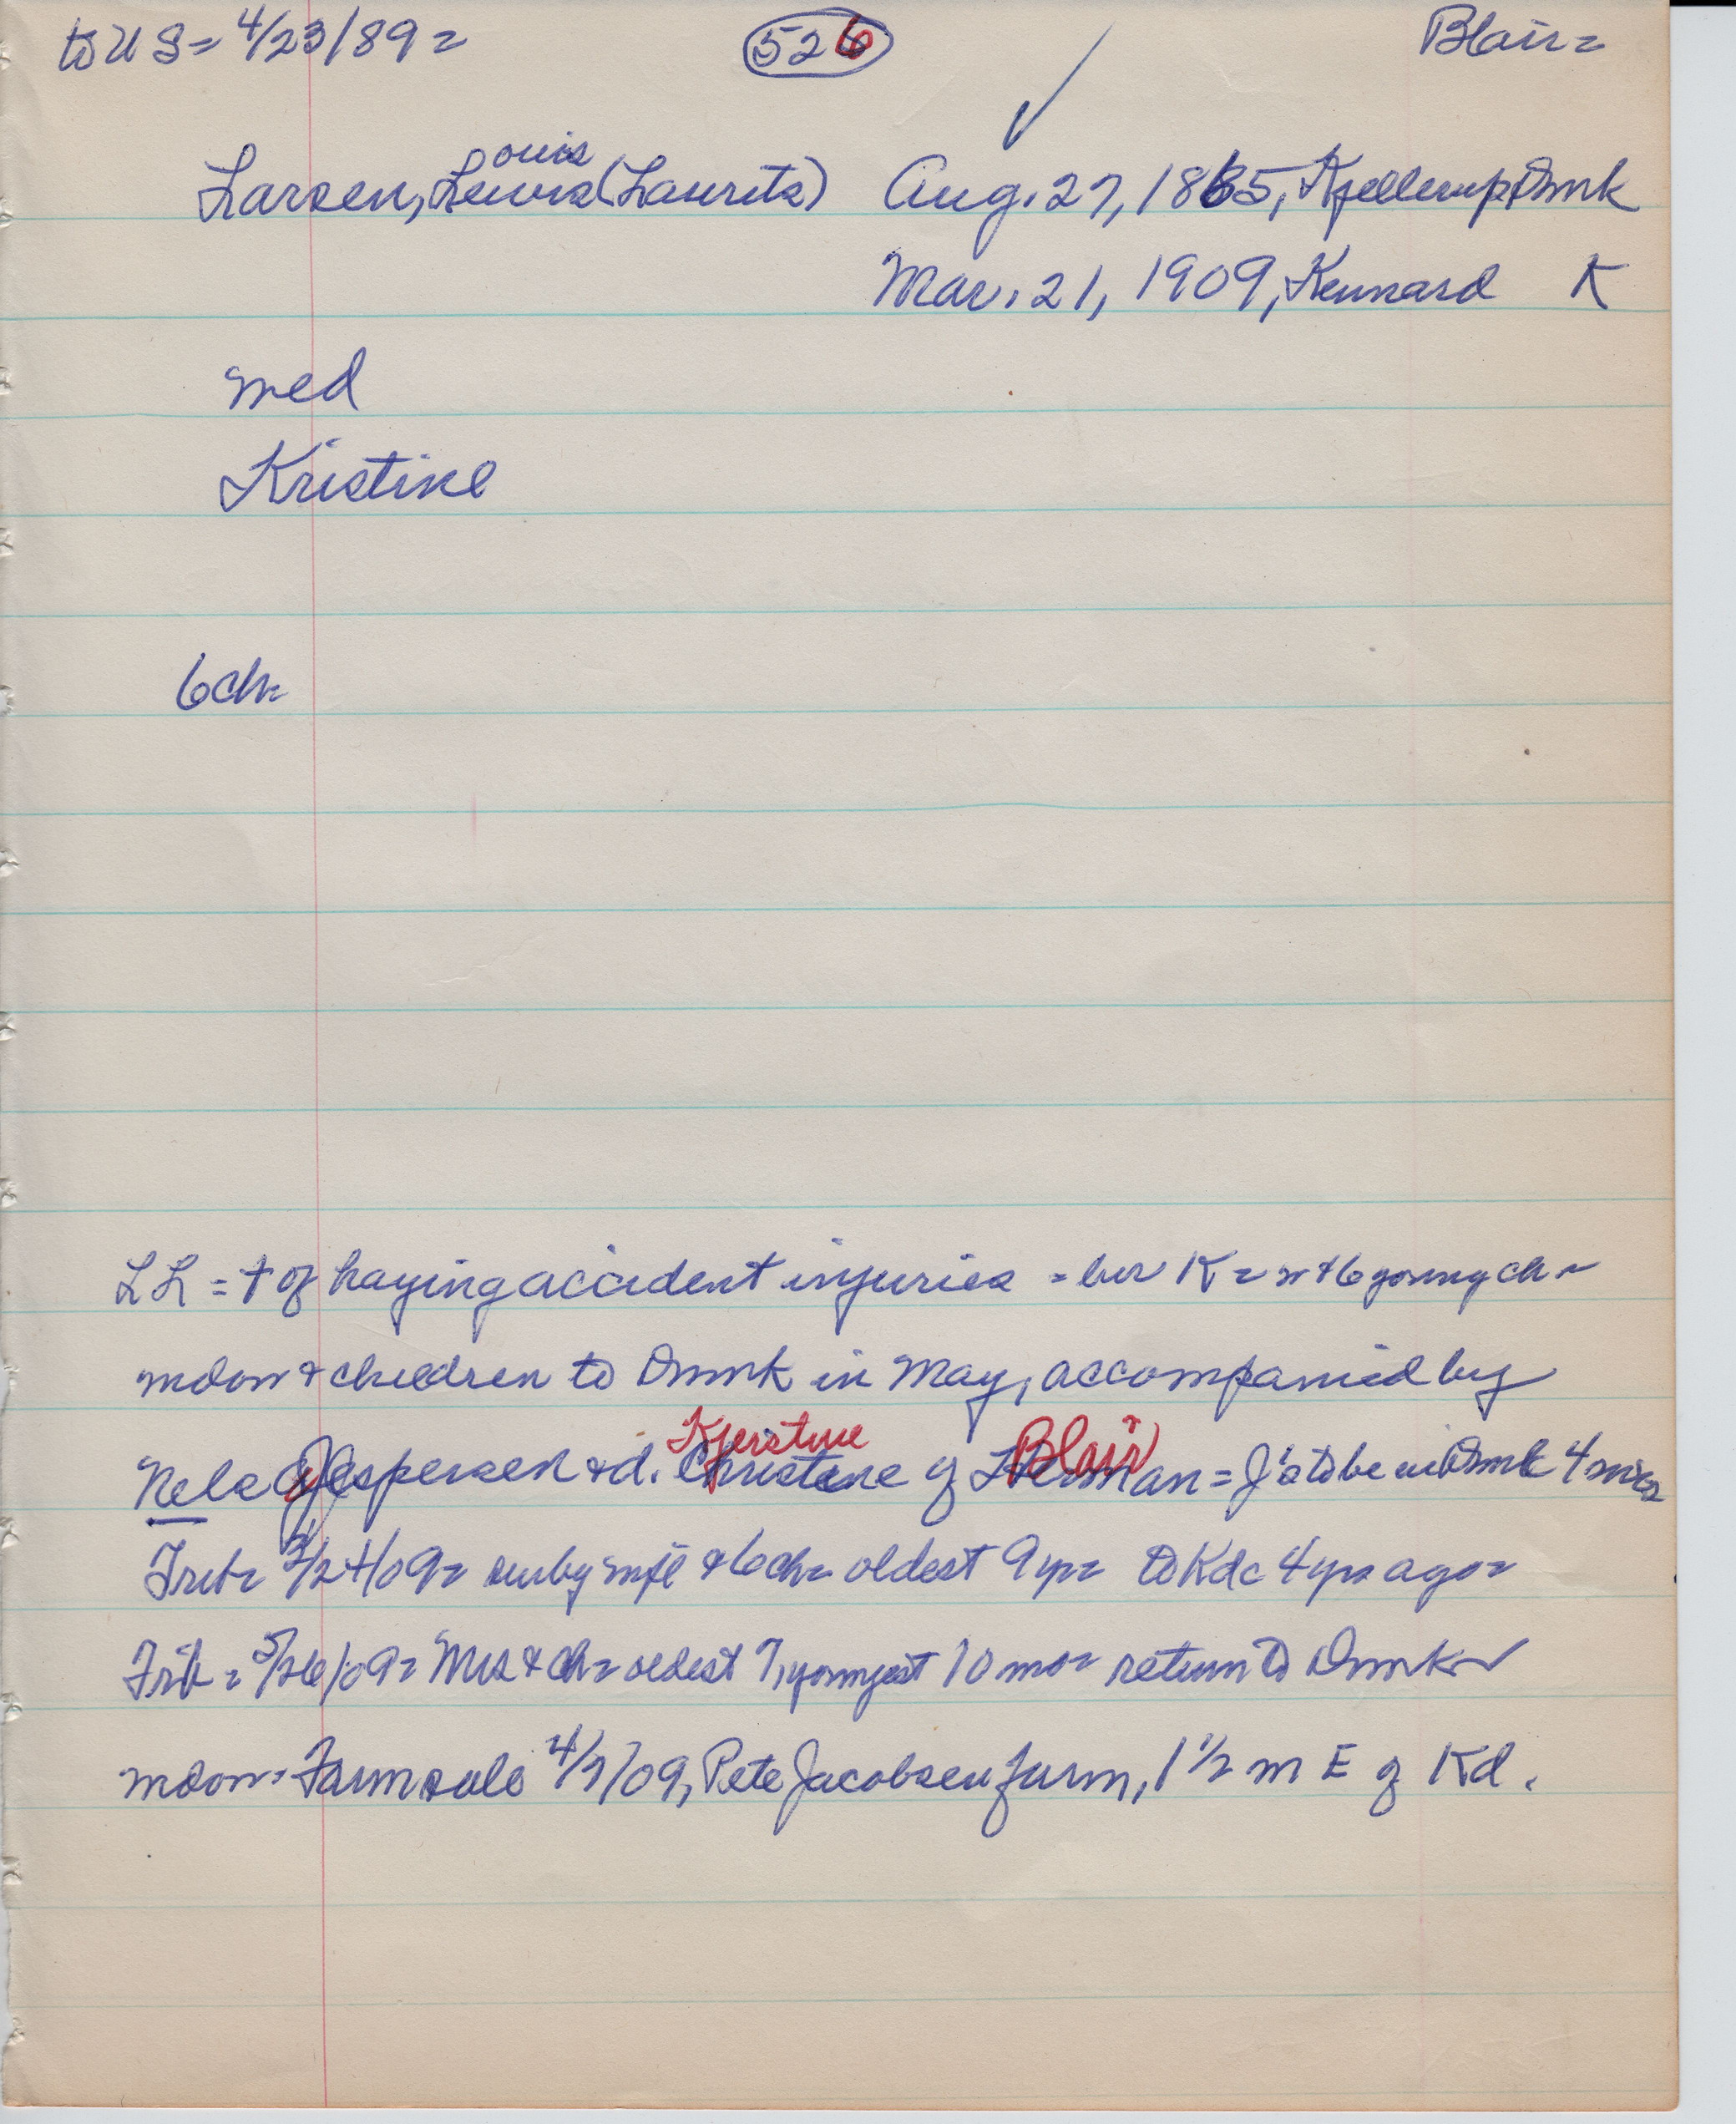 to US = 4/23/89 =
526
Blair =
ouis
Larsen, Lewis (Laurits) Aug. 27, 1865, Kjellerup, Dmrk
Mar. 21, 1909, Kennard K
med
Kristine
6 ch =
LL = † of haying accident injuries = bur K = w + 6 young ch =
wdow + children to Dmrk in May, accompanied by
Kjerstine Blair
Nels Jespersen + d. Christene of Herman = J's to be in Dmrk 4 mos
Trib = 3/24/09 = sur by wife + 6 ch = oldest 9 yr = to Kdc 4 yrs ago =
Trib = 5/26/09 = Mrs + ch = oldest 7, youngest 10 mo = return to Dmrk =
wdow = Farm sale 4/7/09, Pete Jacobsen farm, 1 1/2 m E of Kd.